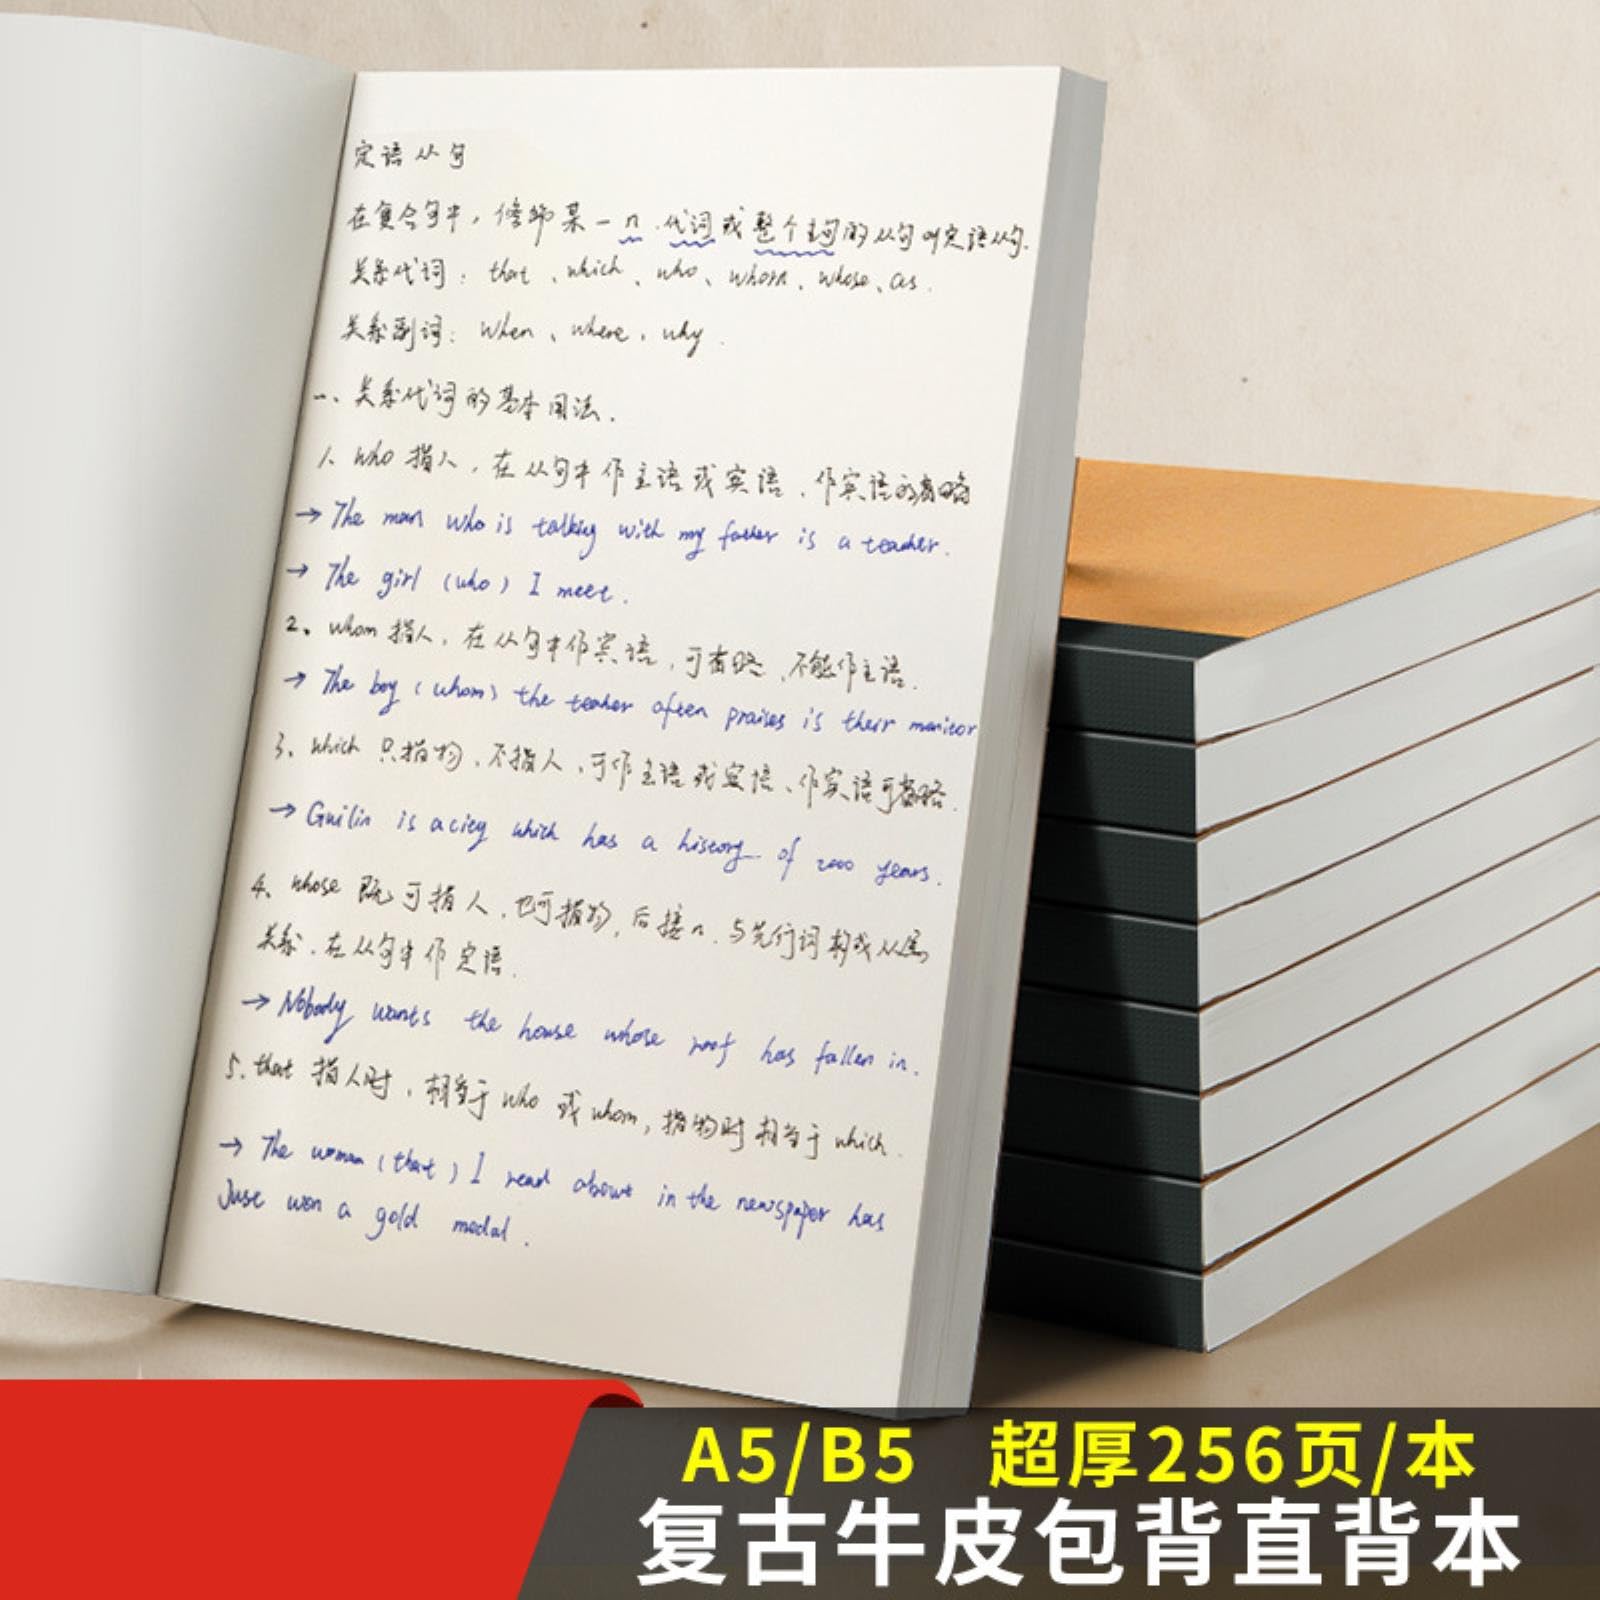 定语从句
在复合句中，修饰某一n.代词或整个主句的从句叫定语从句.
关系代词：that、which、who、whom、whose、as.
关系副词：when、where、why.
一、关系代词的基本用法.
1、who 指人，在从句中作主语或宾语，作宾语可省略
→ The man who is talking with my father is a teacher.
→ The girl (who) I meet.
2、whom 指人，在从句中作宾语，可省略，不能作主语.
→ The boy (whom) the teacher often praises is their monitor
3、which 只指物，不指人，可作主语或宾语、作宾语可省略.
→ Guilin is a city which has a history of 2000 years.
4、whose 既可指人，也可指物，后接n.与先行词构成从属
关系，在从句中作定语.
→ Nobody wants the house whose roof has fallen in.
5. that 指人时，相当于 who 或 whom，指物时相当于 which.
→ The woman (that) I read about in the newspaper has
Just won a gold medal.
A5/B5 超厚256页/本
复古牛皮包背直背本